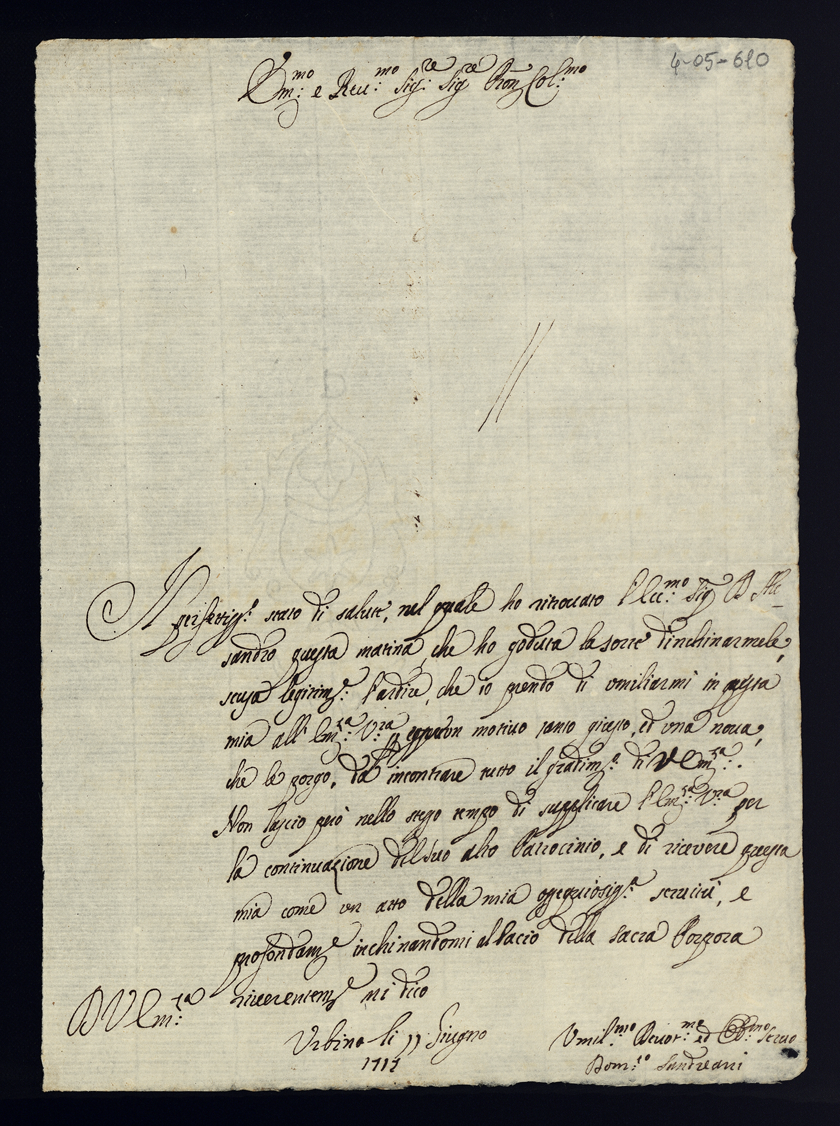 4-05-620
Em:mo e Reu:mo Sig:re Sig:re Pron Col:mo
Il perfettiss:o stato di salute, nel quale ho ritrouato l'Ecc:mo Sig D Ale-
sandro questa matina, che ho goduta la sorte d'inchinarmele,
scusa legitim:e l'ardire, che io prendo di umiliarmi in questa
mia all'Em:za V:ra, motiuo tanto giusto, ed una noua,
che le porgo, da incontrare tutto il gradim:to di V Em:za.
Non lascio però nello stesso tempo di supplicare l'Em:za V:ra per
la continuazione del suo alto Patrocinio, e di riceuere questa
mia come un atto della mia ossequiosiss:a seruitù, e
profondam:e inchinandomi al bacio della Sacra Porpora
riuerentem:e mi dico
D V Em:za
Urbino li 11 Giugno
1717
Umil:mo Deuot:mo ed Obb:mo Seruo
Dom:co Santreani